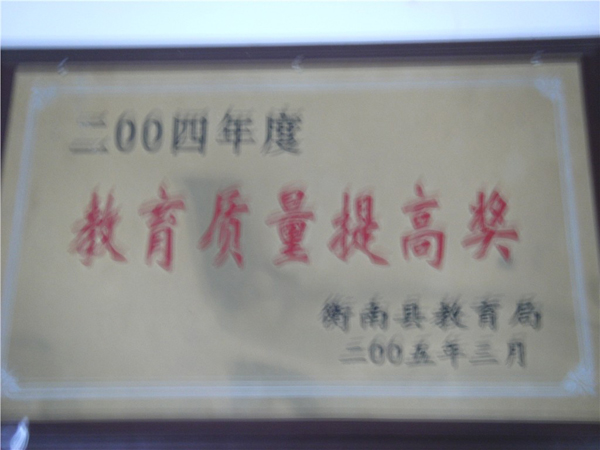 二00四年度
教育质量提高奖
衡南县教育局
二00五年三月